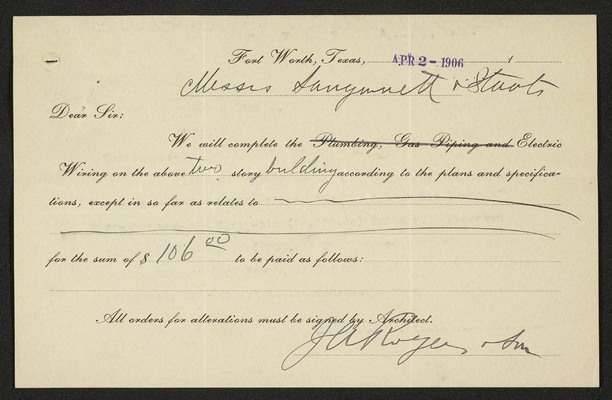 Fort Worth, Texas, APR 2 - 1906 1
Messrs Sanguinett & Staats
Dear Sir:
We will complete the Plumbing, Gas Piping and Electric
Wiring on the above two story building according to the plans and specifica-
tions, except in so far as relates to
for the sum of $ 106 00 to be paid as follows:
All orders for alterations must be signed by Architect.
J A Rogers & Son